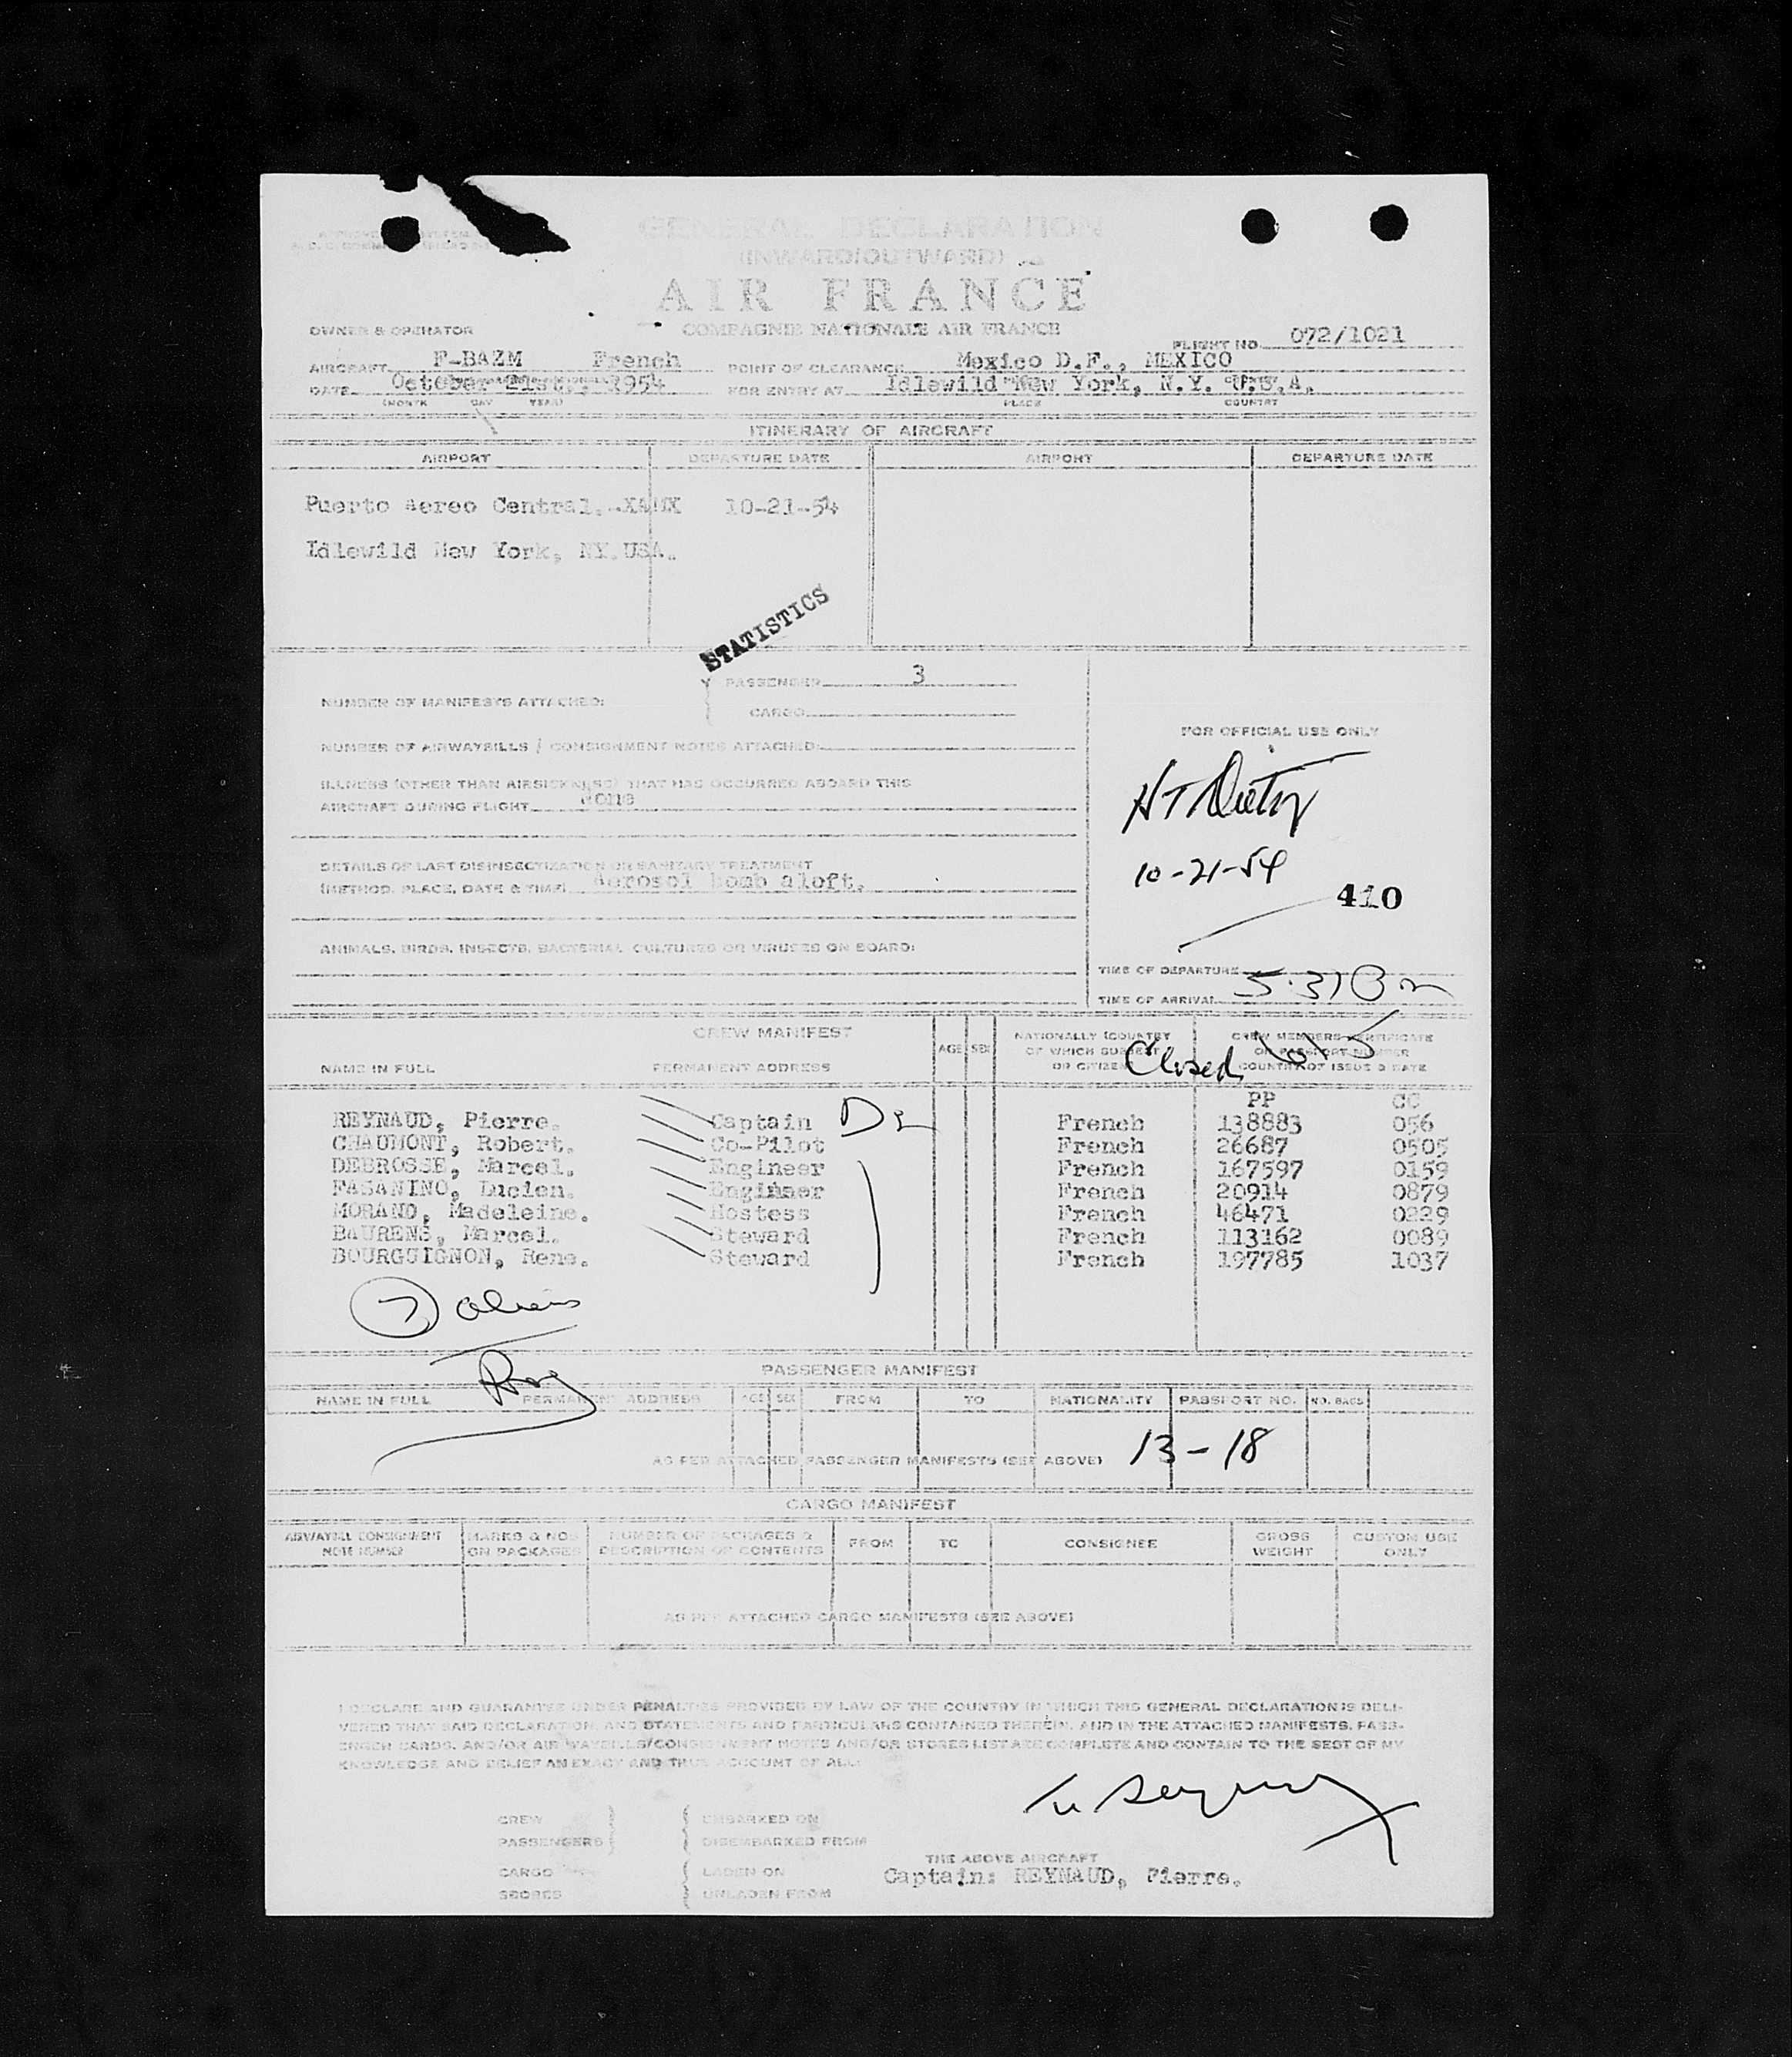 GENERAL DECLARATION
(INWARD/OUTWARD)
AIR FRANCE
COMPAGNIE NATIONALE AIR FRANCE
OWNER & OPERATOR
FLIGHT NO. 072/1021
AIRCRAFT F-BAZM French POINT OF CLEARANCE Mexico D.F., MEXICO
DATE October 21st., 1954 FOR ENTRY AT Idlewild New York, N.Y. U.S.A.
(MONTH DAY YEAR) PLACE COUNTRY
ITINERARY OF AIRCRAFT
AIRPORT DEPARTURE DATE AIRPORT DEPARTURE DATE
Puerto Aereo Central, XAMX 10-21-54
Idlewild New York, NY.USA.
STATISTICS
NUMBER OF MANIFESTS ATTACHED: PASSENGER 3
CARGO
FOR OFFICIAL USE ONLY
NUMBER OF AIRWAYBILLS / CONSIGNMENT NOTES ATTACHED:
ILLNESS (OTHER THAN AIRSICKNESS) THAT HAS OCCURRED ABOARD THIS
AIRCRAFT DURING FLIGHT None
DETAILS OF LAST DISINSECTIZATION OR SANITARY TREATMENT
(METHOD, PLACE, DATE & TIME) Aerosol bomb aloft.
10-21-54
410
ANIMALS, BIRDS, INSECTS, BACTERIAL CULTURES OR VIRUSES ON BOARD:
TIME OF DEPARTURE
TIME OF ARRIVAL 5:31 Pm
CREW MANIFEST
NAME IN FULL PERMANENT ADDRESS AGE SEX NATIONALLY (COUNTRY OF WHICH SUBJECT OR CITIZEN CREW MEMBERS CERTIFICATE OR PASSPORT NUMBER COUNTRY OF ISSUE & DATE
Closed
PP CC
REYNAUD, Pierre. Captain French 138883 056
CHAUMONT, Robert. Co-Pilot French 26687 0505
DEBROSSE, Marcel. Engineer French 167597 0159
FASANINO, Lucien. Engineer French 20914 0879
MORAND, Madeleine. Hostess French 46471 0229
BAURENS, Marcel. Steward French 113162 0089
BOURGUIGNON, Rene. Steward French 197785 1037
7 aliens
PASSENGER MANIFEST
NAME IN FULL PERMANENT ADDRESS AGE SEX FROM TO NATIONALITY PASSPORT NO. NO. BAGS
AS PER ATTACHED PASSENGER MANIFESTS (SEE ABOVE) 13-18
CARGO MANIFEST
AIRWAYBILL CONSIGNMENT NOTE NUMBER MARKS & NOS ON PACKAGES NUMBER OF PACKAGES & DESCRIPTION OF CONTENTS FROM TO CONSIGNEE GROSS WEIGHT CUSTOM USE ONLY
AS PER ATTACHED CARGO MANIFESTS (SEE ABOVE)
I DECLARE AND GUARANTEE UNDER PENALTIES PROVIDED BY LAW OF THE COUNTRY IN WHICH THIS GENERAL DECLARATION IS DELI-
VERED THAT SAID DECLARATION, AND STATEMENTS AND PARTICULARS CONTAINED THEREIN, AND IN THE ATTACHED MANIFESTS, PASS-
ENGER CARDS, AND/OR AIR WAYBILLS/CONSIGNMENT NOTES AND/OR STORES LIST ARE COMPLETE AND CONTAIN TO THE BEST OF MY
KNOWLEDGE AND BELIEF AN EXACT AND TRUE ACCOUNT OF ALL:
CREW EMBARKED ON
PASSENGERS DISEMBARKED FROM
THE ABOVE AIRCRAFT
CARGO LADEN ON Captain: REYNAUD, Pierre.
STORES UNLADEN FROM